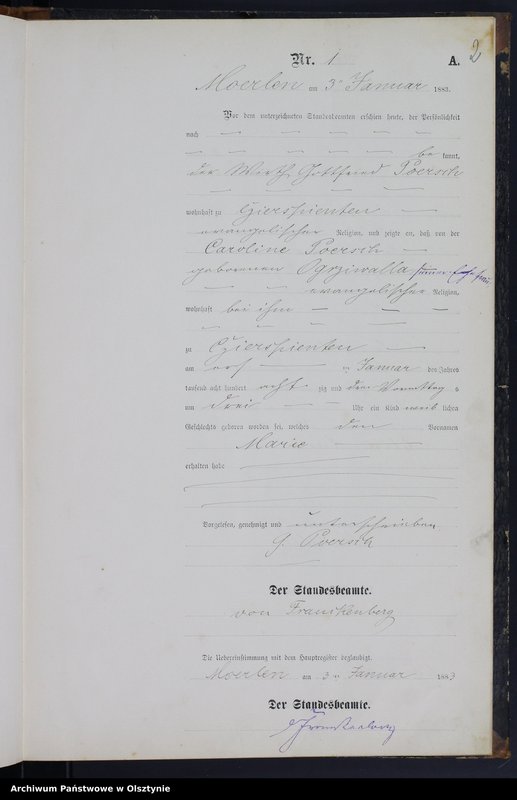 2
Nr. 1 A.
Moerlen am 3ⁿ Januar 1883.
Vor dem unterzeichneten Standesbeamten erschien heute, der Persönlichkeit
nach
be kannt,
der Wirth Gottfried Poersch
wohnhaft zu Gierspienten
evangelischer Religion, und zeigte an, daß von der
Caroline Poersch
geborenen Ogrziwalla seiner Ehefrau
evangelischer Religion,
wohnhaft bei ihm
zu Gierspienten
am Januar des Jahres
tausend acht hundert acht zig und drei Vormittag s
um drei Uhr ein Kind weib lichen
Geschlechts geboren worden sei, welches den Vornamen
Marie
erhalten habe
Vorgelesen, genehmigt und unterschrieben
G. Poersch
Der Standesbeamte.
von Franckenberg
Die Uebereinstimmung mit dem Hauptregister beglaubigt.
Moerlen am 3ⁿ Januar 1883
Der Standesbeamte.
Archiwum Państwowe w Olsztynie